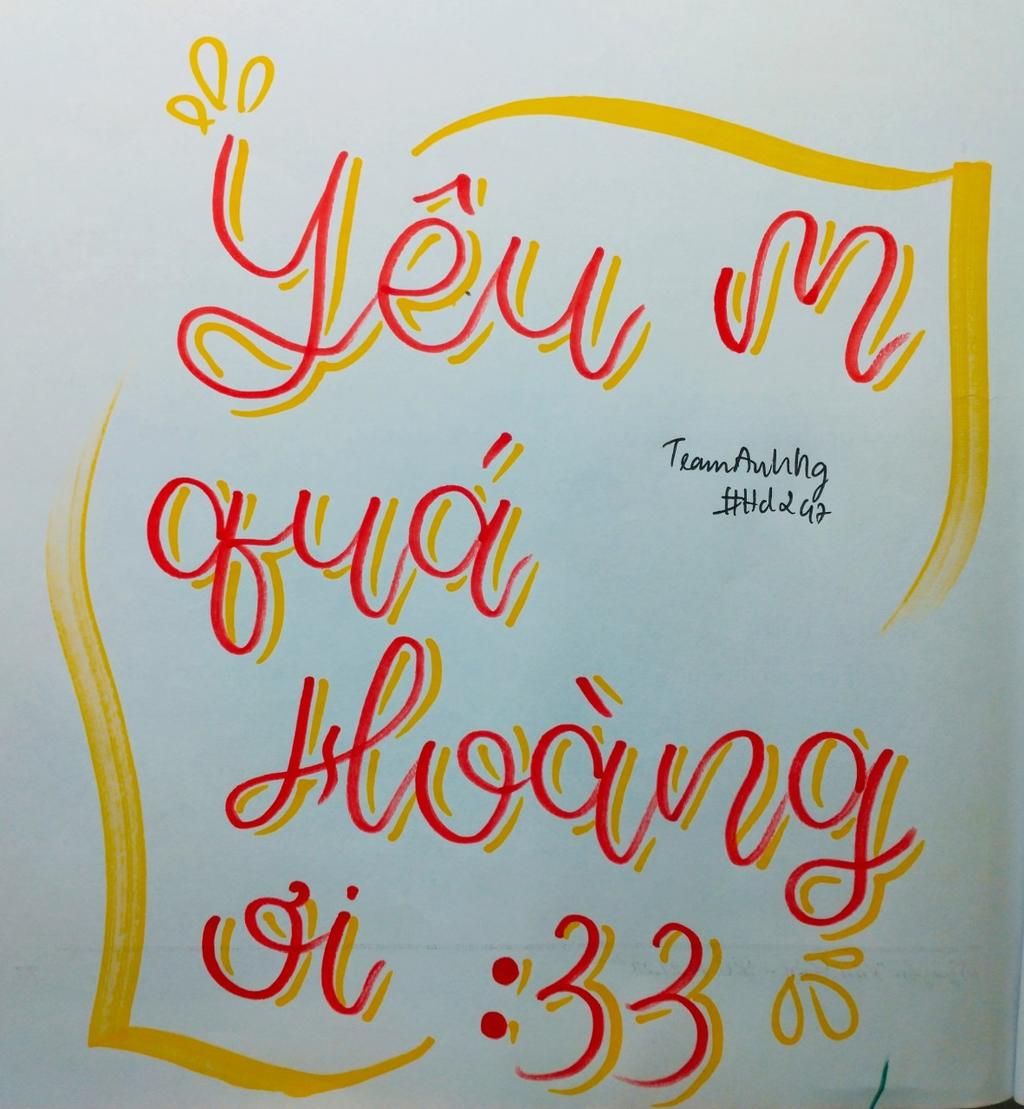 Yêu m
quá
TeamAnhNg
#Hd247
Hoàng
ơi :33